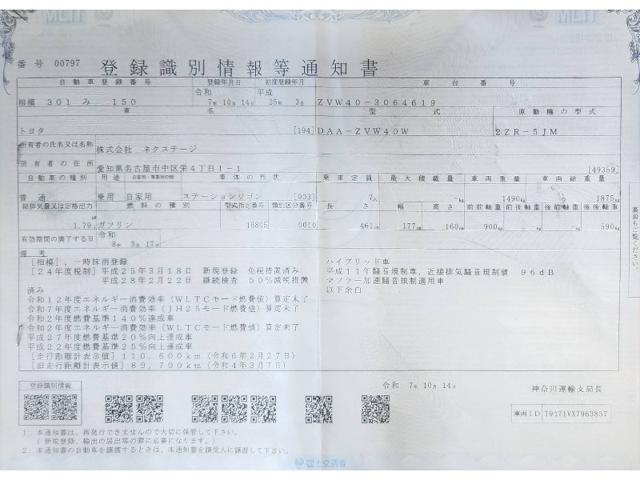 番号 00797 登録識別情報等通知書
自動車登録番号 登録年月日 初度登録年月 車台番号
令和 平成
相模 301 み 150 7年10月14日 25年 3月 ZVW40-3064619
車名 型式 原動機の型式
トヨタ [194] DAA-ZVW40W 2ZR-5JM
所有者の氏名又は名称 株式会社 ネクステージ
所有者の住所 愛知県名古屋市中区栄4丁目1-1 [49359]
自動車の種別 用途 自家用・事業用の別 車体の形状 乗車定員 最大積載量 車両重量 車両総重量
普通 乗用 自家用 ステーションワゴン [003] 7人 1490kg 1875kg
総排気量又は定格出力 燃料の種類 型式指定番号 類別区分番号 長さ 幅 高さ 前前軸重 前後軸重 後前軸重 後後軸重
1.79 ガソリン 16805 0010 461cm 177cm 160cm 900kg 590kg
有効期間の満了する日 令和
8年 3月 17日
備考
[相模], 一時抹消登録
[24年度税制] 平成25年3月18日 新規登録 免税措置済み
平成28年2月22日 継続検査 50%減税措置
済み
令和12年度エネルギー消費効率(WLTCモード燃費値)算定未了
令和7年度エネルギー消費効率(JH25モード燃費値)算定未了
令和2年度燃費基準140%達成車
令和2年度エネルギー消費効率(WLTCモード燃費値)算定未了
平成27年度燃費基準20%向上達成車
平成22年度燃費基準25%向上達成車
[走行距離計表示値] 110,600km (令和6年2月27日)
[旧走行距離計表示値] 89,700km (令和4年3月7日)
ハイブリッド車
平成11年騒音規制車、近接排気騒音規制値 96dB
マフラー加速騒音規制適用車
以下余白
登録識別情報
令和 7年10月14日 神奈川運輸支局長
車両ID T9171VX7963857
1. 本通知書は、再発行できませんので大切に保管して下さい。
(新規登録、輸出の届出等の際に必要になります。)
2. 本通知書の自動車を譲渡するときは、本通知書を譲受人に譲渡して下さい。
国土交通省
裏面もご覧ください。